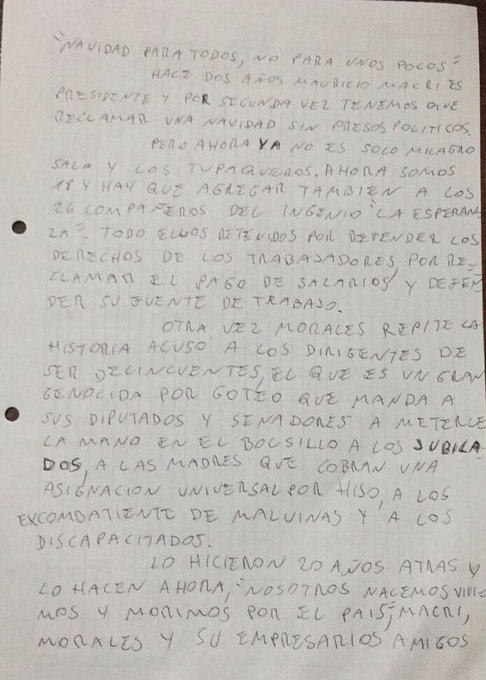 "NAVIDAD PARA TODOS, NO PARA UNOS POCOS"
HACE DOS AÑOS MAURICIO MACRI ES
PRESIDENTE Y POR SEGUNDA VEZ TENEMOS QUE
RECLAMAR UNA NAVIDAD SIN PRESOS POLITICOS.
PERO AHORA YA NO ES SOLO MILAGRO
SALA Y LOS TUPAQUEROS. AHORA SOMOS
18 Y HAY QUE AGREGAR TAMBIEN A LOS
26 COMPAÑEROS DEL INGENIO "LA ESPERAN
ZA". TODO ELLOS DETENIDOS POR DEFENDER LOS
DERECHOS DE LOS TRABAJADORES, POR RE-
CLAMAR EL PAGO DE SALARIOS, Y DEFEN
DER SU FUENTE DE TRABAJO.
OTRA VEZ MORALES REPITE LA
HISTORIA ACUSO A LOS DIRIGENTES DE
SER DELINCUENTES, EL QUE ES UN GRAN
GENOCIDA POR GOTEO QUE MANDA A
SUS DIPUTADOS Y SENADORES A METERLE
LA MANO EN EL BOLSILLO A LOS JUBILA-
DOS, A LAS MADRES QUE COBRAN UNA
ASIGNACION UNIVERSAL POR HISO, A LOS
EXCOMBATIENTE DE MALVINAS Y A LOS
DISCAPACITADOS.
LO HICIERON 20 AÑOS ATRAS Y
LO HACEN AHORA, "NOSOTROS NACEMOS VIVI-
MOS Y MORIMOS POR EL PAIS", MACRI,
MORALES Y SU EMPRESARIOS AMIGOS